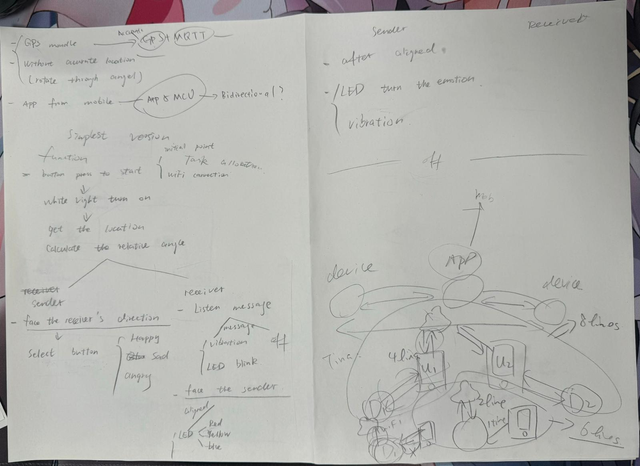 - GPS module → GPS + MQTT
- Without accurate location
(rotate through angel)
- App from mobile → App & MCU → Bidirectional?
Simplest version
function
initial point
- button press to start
Task allocation
wifi connection
white light turn on
get the location
Calculate the relative angle
receiver
sender
- face the receiver's direction
select button
happy
sad
angry
receiver
- Listen message
message
vibration
LED blink
- face the sender
aligned
LED
Red
Yellow
blue
Sender
Receiver
- after aligned,
- LED turn the emotion
vibration
#
App
device
device
8 lines
4 line
U1
U2
2 line
D2
6 lines